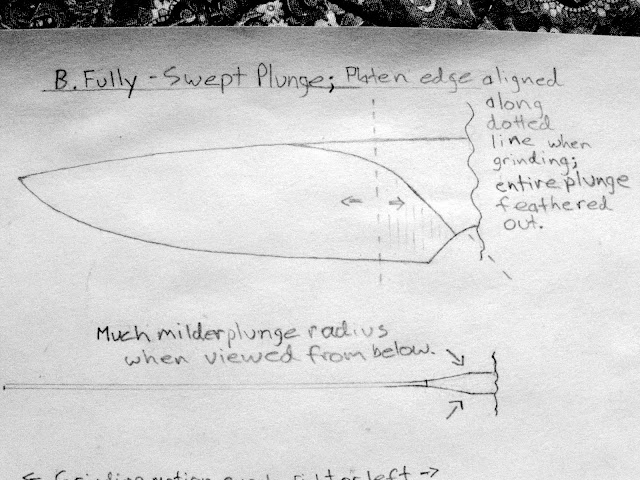 B. Fully - Swept Plunge; Platen edge aligned
along
dotted
line when
grinding;
entire plunge
feathered
out.
Much milder plunge radius
when viewed from below.
left